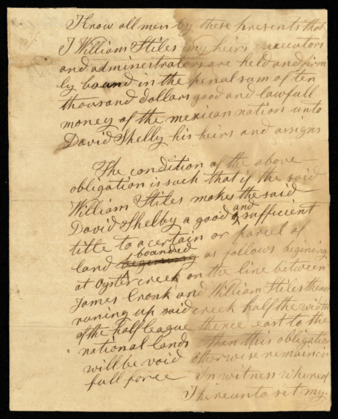 Know all men by these presents that
I William Stiles my heirs executors
and administrators are held and firm
ly bound in the penal sum of ten
thousand dollars good and lawfull
money of the mexican nation unto
David Shelby his heirs and assigns
The condition of the above
obligation is such that if the said
William Stiles makes the said
David Shelby a good and sufficient
title to a certain or parcel of
land bounded as follows begining
at Oyster creek on the line between
James Cronk and William Stiles thence
runing up said creek half the width
of the half league thence east to the
national lands then this obligation
will be void otherwise remain in
full force In witness whereof
I hereunto set my